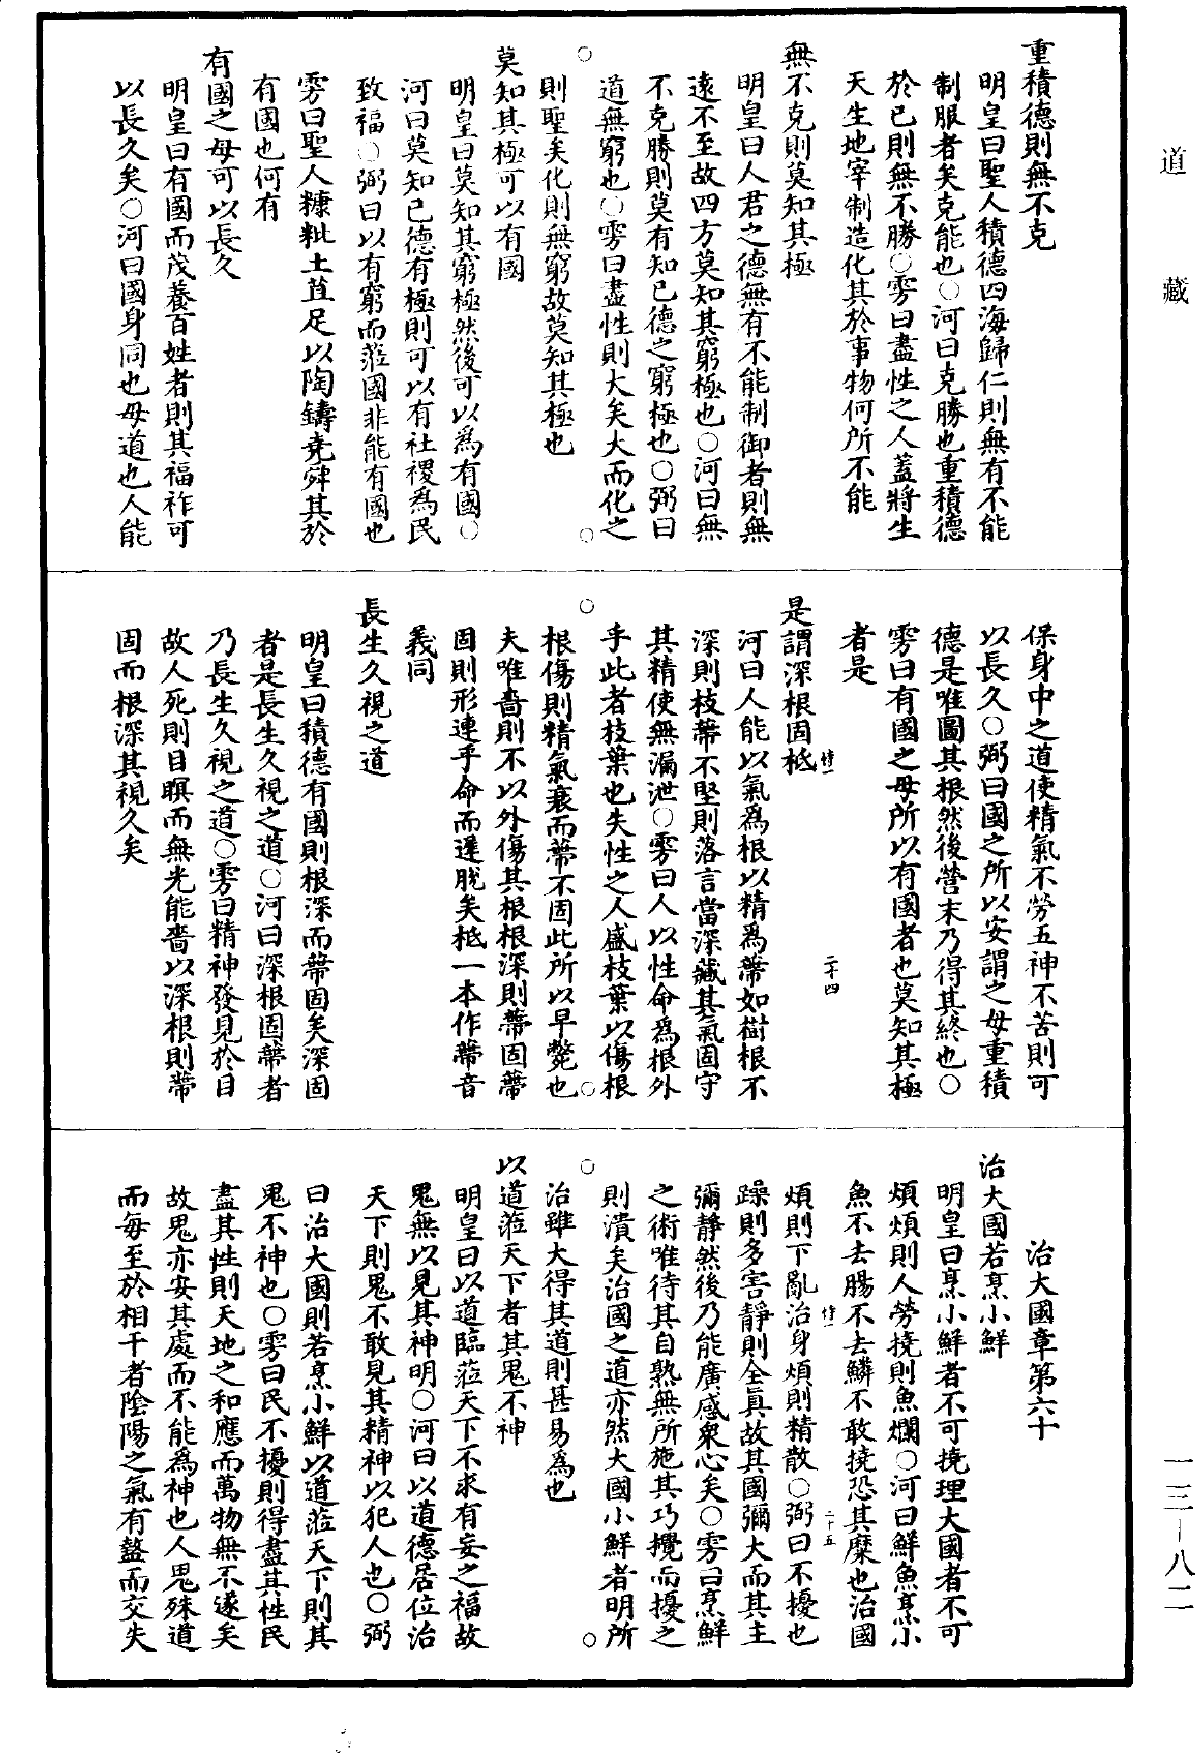 道藏
重積德則無不克
明皇曰聖人積德四海歸仁則無有不能
制服者矣克能也○河曰克勝也重積德
於已則無不勝○雱曰盡性之人蓋將生
天生地宰制造化其於事物何所不能
無不克則莫知其極
明皇曰人君之德無有不能制御者則無
遠不至故四方莫知其窮極也○河曰無
不克勝則莫有知已德之窮極也○弼曰
道無窮也○雱曰盡性則大矣大而化之
則聖矣化則無窮故莫知其極也
莫知其極可以有國
明皇曰莫知其窮極然後可以為有國○
河曰莫知已德有極則可以有社稷為民
致福○弼曰以有窮而蒞國非能有國也
雱曰聖人糠粃土苴足以陶鑄堯舜其於
有國也何有
有國之母可以長久
明皇曰有國而茂養百姓者則其福祚可
以長久矣○河曰國身同也母道也人能
保身中之道使精氣不勞五神不苦則可
以長久○弼曰國之所以安謂之母重積
德是唯圖其根然後營末乃得其終也○
雱曰有國之母所以有國者也莫知其極
者是
是謂深根固柢
河曰人能以氣為根以精為蔕如樹根不
深則枝蔕不堅則落言當深藏其氣固守
其精使無漏泄○雱曰人以性命為根外
乎此者枝葉也失性之人盛枝葉以傷根
根傷則精氣衰而蔕不固此所以早斃也
夫唯嗇則不以外傷其根根深則蔕固蔕
固則形連乎命而運脫矣柢一本作蔕音
義同
長生久視之道
明皇曰積德有國則根深而蔕固矣深固
者是長生久視之道○河曰深根固蔕者
乃長生久視之道○雱曰精神發見於目
故人死則目瞑而無光能嗇以深根則蔕
固而根深其視久矣
治大國章第六十
治大國若烹小鮮
明皇曰烹小鮮者不可撓理大國者不可
煩煩則人勞撓則魚爛○河曰鮮魚烹小
魚不去腸不去鱗不敢撓恐其糜也治國
煩則下亂治身煩則精散○弼曰不擾也
躁則多害靜則全真故其國彌大而其主
彌靜然後乃能廣感衆心矣○雱曰烹鮮
之術唯待其自熟無所施其巧攪而擾之
則潰矣治國之道亦然大國小鮮者明所
治雖大得其道則甚易為也
以道蒞天下者其鬼不神
明皇曰以道臨蒞天下不求有妄之福故
鬼無以見其神明○河曰以道德居位治
天下則鬼不敢見其精神以犯人也○弼
曰治大國則若烹小鮮以道蒞天下則其
鬼不神也○雱曰民不擾則得盡其性民
盡其性則天地之和應而萬物無不遂矣
故鬼亦安其處而不能為神也人鬼殊道
而每至於相干者陰陽之氣有盩而交失
一三—八二